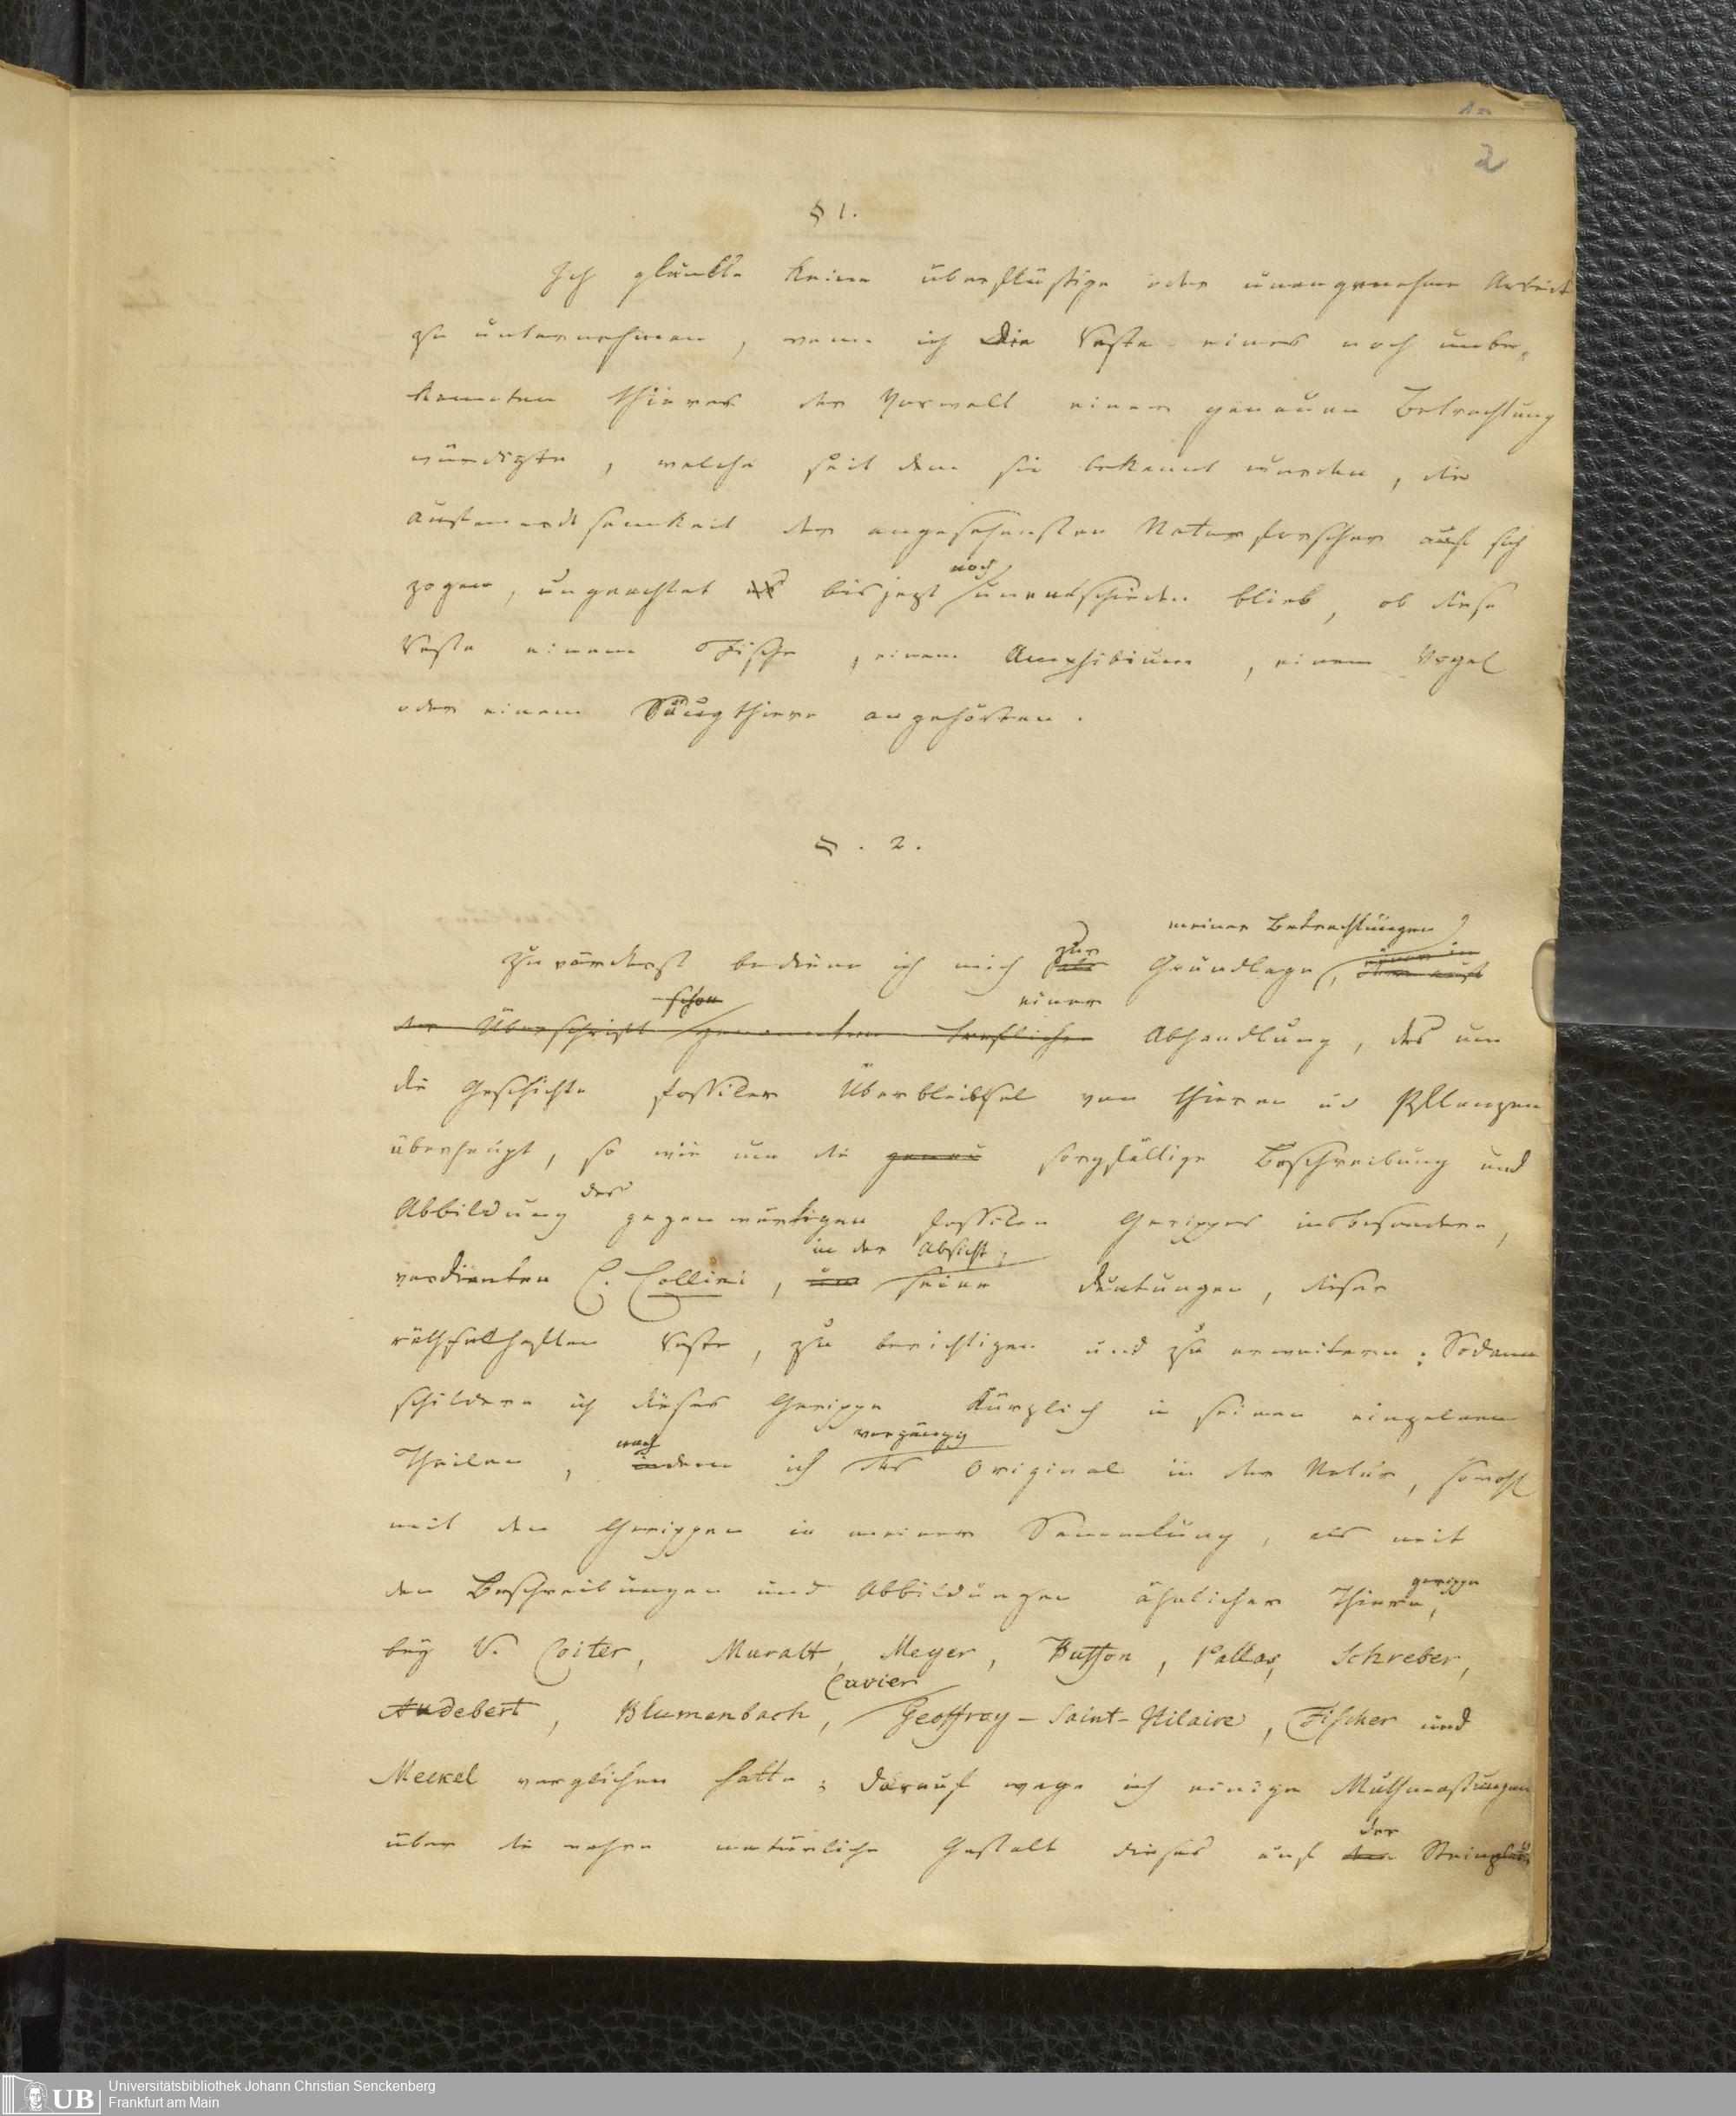 2
§ 1.
Ich glaubte keine überflüßige oder unangenehme Arbeit
zu unternehmen, wenn ich die Reste eines noch unbe=
kannten Thieres der Vorwelt einer genauen Betrachtung
würdigte, welche seit dem sie bekannt wurden, die
Aufmerksamkeit der angesehensten Naturforscher auf sich
noch
zogen, ungeachtet es bis jezt unentschieden blieb, ob diese
Reste einem Fische, einem Amphibium, einem Vogel
oder einem Säugthiere angehörten.
§. 2.
meiner Betrachtungen
zur
Zuvörderst bediene ich mich als Grundlage,
schon einer
der Überschrift genannten treflichen Abhandlung, des um
die Geschichte fossiler Überbleibsel von Thieren und Pflanzen
überhaupt, so wie um die genau sorgfältige Beschreibung und
des
Abbildung gegenwärtigen fossilen Gerippes insbesondere,
in der Absicht,
verdienten C. Collini, um seine Deutungen, dieser
räthselhaften Reste, zu berichtigen und zu erweitern; Sodann
schildere ich dieses Gerippe kürzlich in seinen einzelnen
nach vorgängig
Theilen, indem ich das Original in der Natur, sowohl
mit den Gerippen in meiner Sammlung, als mit
gerippe
den Beschreibungen und Abbildungen ähnlicher Thiere,
bey V. Coiter, Muralt, Meyer, Buffon, Pallas, Schreber,
Cuvier
Audebert, Blumenbach, Geoffroy-Saint-Hilaire, Fischer und
Meckel verglichen hatte; darauf wage ich einige Muthmaßungen
der
über die wahre natürliche Gestalt dieses auf den
Universitätsbibliothek Johann Christian Senckenberg
Frankfurt am Main
UB